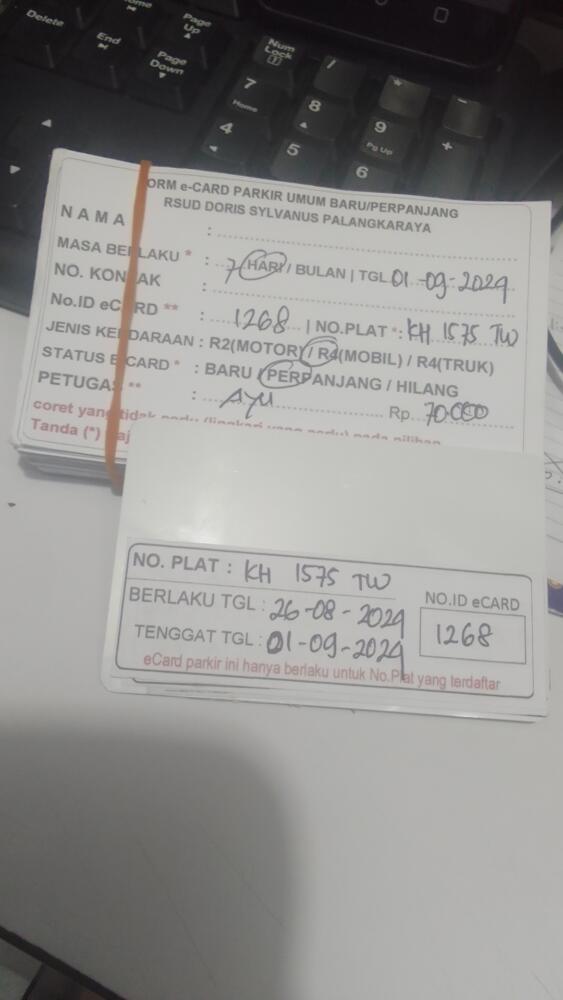 Delete
Home
End
Page Up
Page Down
Num Lock
/
*
-
7 Home
8
9 Pg Up
+
4
5
6
ORM e-CARD PARKIR UMUM BARU/PERPANJANG
RSUD DORIS SYLVANUS PALANGKARAYA
NAMA :
MASA BERLAKU * : 7 HARI / BULAN | TGL 01-09-2024
NO. KONTAK :
No.ID eCARD ** : 1268 | NO.PLAT * : KH 1575 TW
JENIS KENDARAAN : R2(MOTOR) / R4(MOBIL) / R4(TRUK)
STATUS ECARD * : BARU / PERPANJANG / HILANG
PETUGAS ** : AYU Rp. 70000
coret yang tidak perlu (lingkari yang perlu) pada pilihan
Tanda (*) aj
NO. PLAT : KH 1575 TW
BERLAKU TGL : 26-08-2024
NO.ID eCARD
TENGGAT TGL : 01-09-2024
1268
eCard parkir ini hanya berlaku untuk No.Plat yang terdaftar